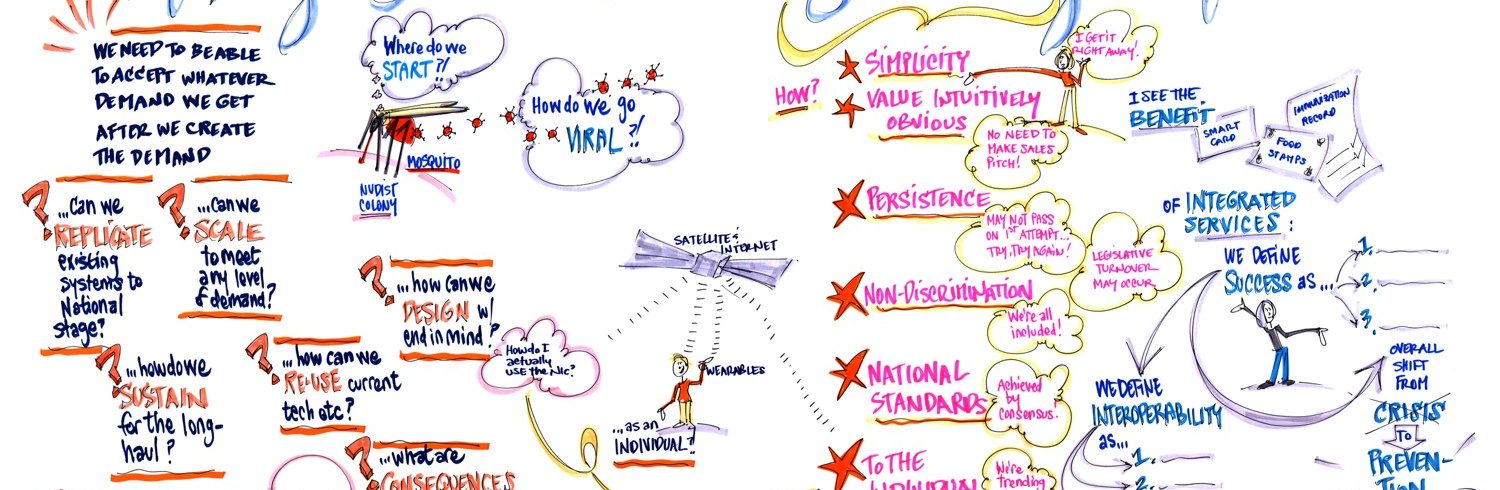 WE NEED TO BE ABLE
TO ACCEPT WHATEVER
DEMAND WE GET
AFTER WE CREATE
THE DEMAND
? ...can we
REPLICATE
existing
systems to
National
stage?
? ...can we
SCALE
to meet
any level
of demand?
? ...how can we
DESIGN w/
end in mind?
? ...how do we
SUSTAIN
for the long-
haul?
? ...how can we
RE-USE current
tech etc?
? ...what are
CONSEQUENCES
Where do we
START?!
MOSQUITO
NUDIST
COLONY
How do we go
VIRAL?!
SATELLITE &
INTERNET
WEARABLES
How do I
actually
USE the NIC?
...as an
INDIVIDUAL?
HOW?
SIMPLICITY
I GET IT
RIGHT AWAY!
VALUE INTUITIVELY
OBVIOUS
NO NEED TO
MAKE SALES
PITCH!
PERSISTENCE
MAY NOT PASS
ON 1ST ATTEMPT..
TRY, TRY AGAIN!
LEGISLATIVE
TURNOVER
MAY OCCUR
NON-DISCRIMINATION
We're all
included!
NATIONAL
STANDARDS
Achieved
by
consensus!
TO THE
INDIVIDUAL
We're
trending
I SEE THE
BENEFIT
SMART
CARD
FOOD
STAMPS
IMMUNIZATION
RECORD
OF INTEGRATED
SERVICES:
WE DEFINE
SUCCESS as...
1.
2.
3.
WE DEFINE
INTEROPERABILITY
as...
1.
2.
OVERALL
SHIFT
FROM
CRISIS
TO
PREVEN-
TION